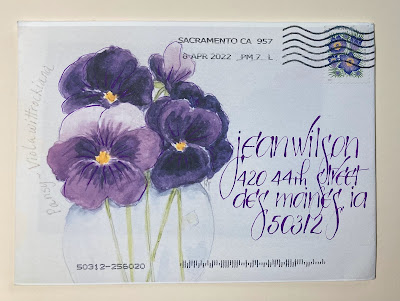 SACRAMENTO CA 957
8 APR 2022 PM 7 L
Pansy - Viola wittrockiana
jean wilson
420 44th street
des moines, ia
50312
50312-256020